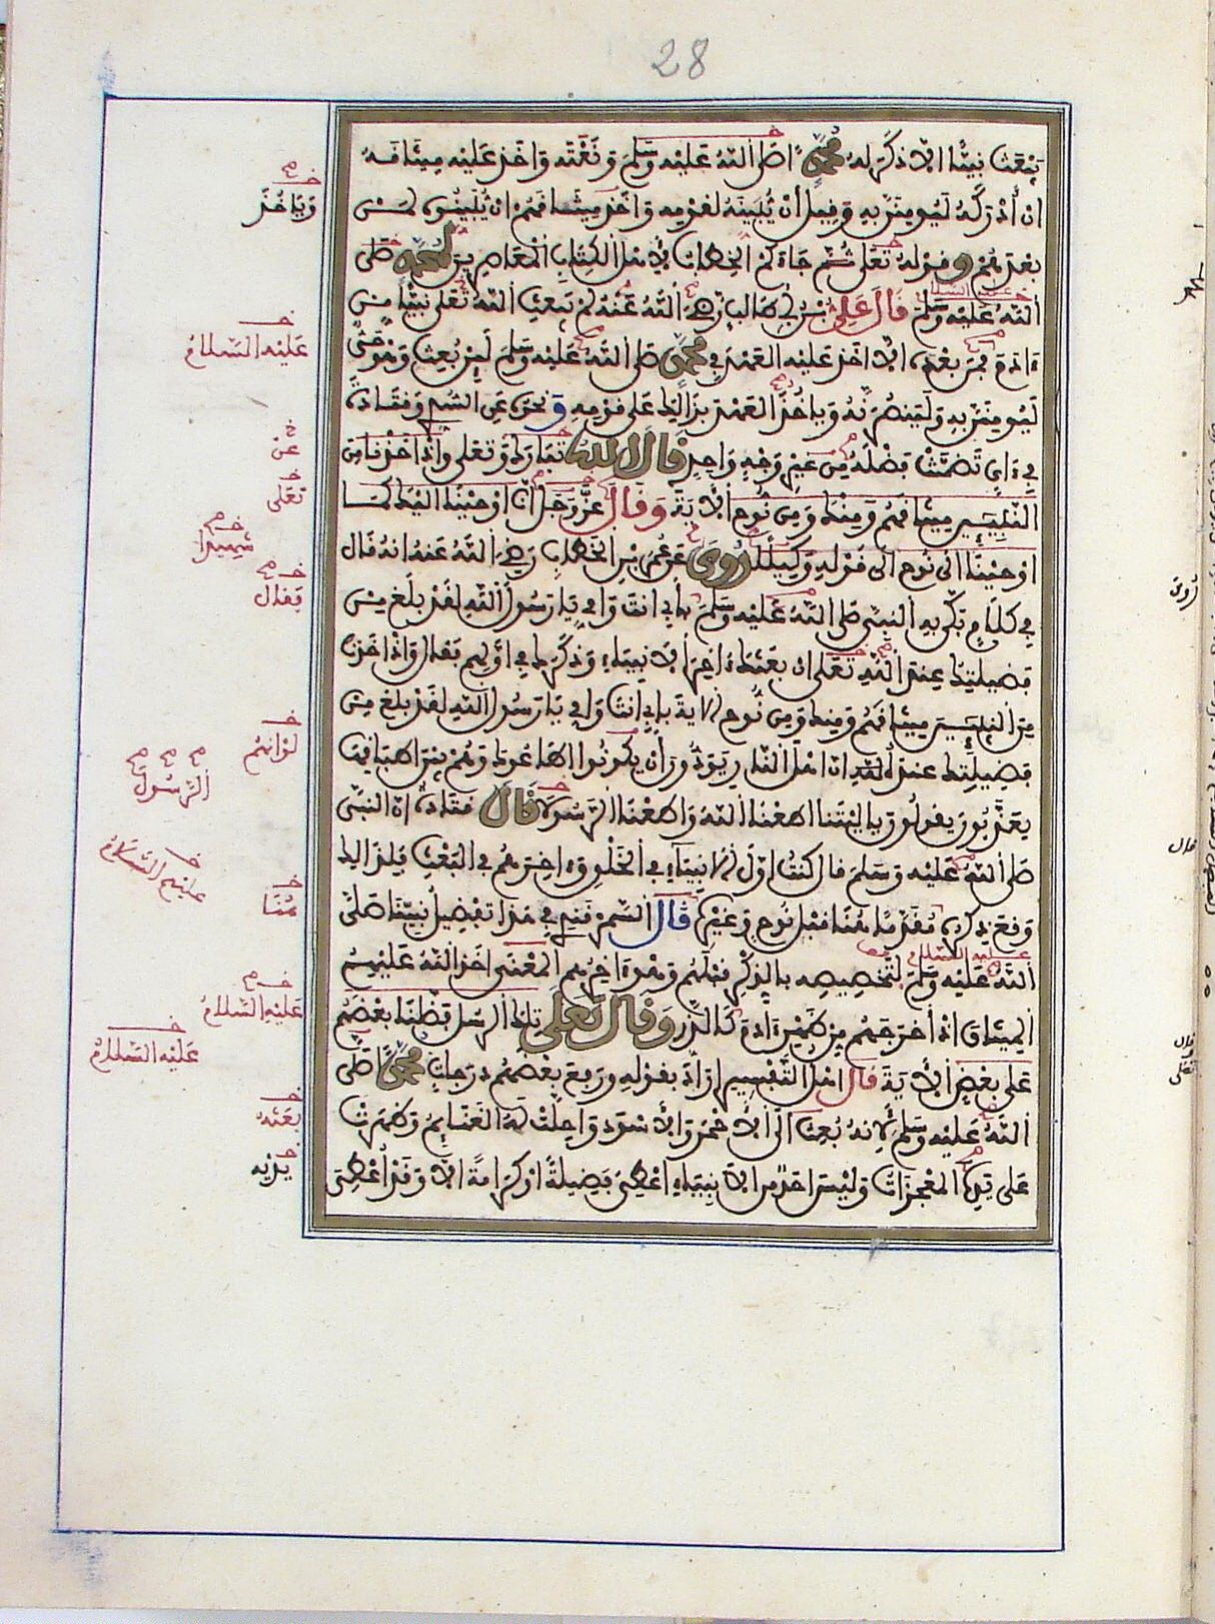 28
يبعث نبيا الا ذكر له محمدا صلى الله عليه وسلم ونعته واخذ عليه ميثاقه
ان ادركه ليومنن به وقيل ان يبينه لقومه واخذ ميثاقهم ان يبينوه لمن
بعدهم وقوله تعلى ثم جاءكم الخطاب لاهل الكتاب المعاصرين لمحمد صلى
الله عليه وسلم قال علي بن ابي طالب رضي الله عنه لم يبعث الله تعلى نبيا من
ءادم فمن بعده الا اخذ عليه العهد في محمد صلى الله عليه وسلم لين بعث وهو حي
ليومنن به ولينصرنه ويأخذ العهد بذالك على قومه ونحوه عن السدي وقتادة
في ءاي تضمنت فضله من غير وجه واحد قال الله تبارك وتعلى واذ اخذنا من
النبيين ميثاقهم ومنك ومن نوح الاية وقال عز وجل انا اوحينا اليك كما
اوحينا الى نوح الى قوله وكيلا روي عن عمر بن الخطاب رضي الله عنه انه قال
في كلام بكى به النبي صلى الله عليه وسلم بابي انت وامي يا رسول الله لقد بلغ من
فضيلتك عند الله تعلى ان بعثك ءاخر الانبياء وذكرك في اولهم فقال واذ اخذنا
من النبيين ميثاقهم ومنك ومن نوح الاية بابي انت وامي يا رسول الله لقد بلغ من
فضيلتك عند الله ان اهل النار يودون ان يكونوا اطاعوك وهم بين اطباقها
يعذبون يقولون يا ليتنا اطعنا الله واطعنا الرسولا قال قتادة ان النبي
صلى الله عليه وسلم قال كنت اول الانبياء في الخلق وءاخرهم في البعث فلذالك
وقع ذكره مقدما هنا قبل نوح وغيره قال السمرقندي في هذا تفضيل نبينا صلى
الله عليه وسلم لتخصيصه بالذكر قبلهم وهو ءاخرهم المعنى اخذ الله عليهم
الميثاق اذ اخرجهم من ظهر ءادم كالذر وقال تعلى تلك الرسل فضلنا بعضهم
على بعض الاية قال اهل التفسير اراد بقوله ورفع بعضهم درجات محمدا صلى
الله عليه وسلم لانه بعث الى الاحمر والاسود واحلت له الغنايم وظهرت
على يديه المعجزات وليس احد من الانبياء اعطي فضيلة او كرامة الا وقد اعطي
ويأخذ
عليه السلام
عن
تعلى
شهيدا
فقال
لو انهم
الرسول
عليهم السلام
هنا
عليه السلام
عليه السلام
بعثه
يديه